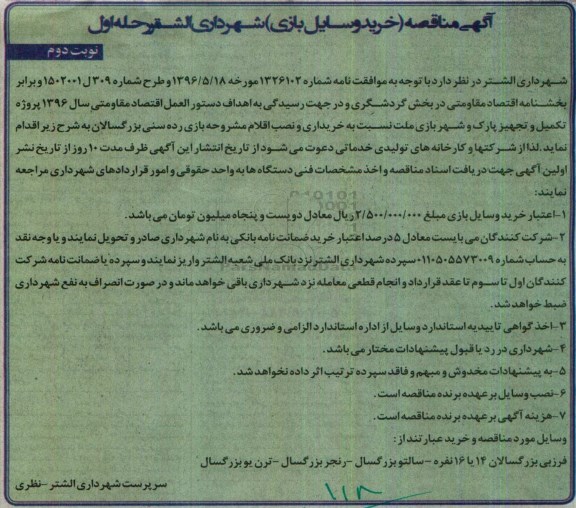 آگهی مناقصه (خرید وسایل بازی) شهرداری الشتر مرحله اول
نوبت دوم
شهرداری الشتر در نظر دارد با توجه به موافقت نامه شماره ۱۳۲۶۱۰۲ مورخه ۱۳۹۶/۵/۱۸ و طرح شماره ۳۰۹ ل ۱۵۰۲۰۰۱ و برابر
بخشنامه اقتصاد مقاومتی در بخش گردشگری و در جهت رسیدگی به اهداف دستور العمل اقتصاد مقاومتی سال ۱۳۹۶ پروژه
تکمیل و تجهیز پارک و شهربازی ملت نسبت به خریداری و نصب اقلام مشروحه بازی رده سنی بزرگسالان به شرح زیر اقدام
نماید. لذا از شرکتها و کارخانه های تولیدی خدماتی دعوت می شود از تاریخ انتشار این آگهی ظرف مدت ۱۰ روز از تاریخ نشر
اولین آگهی جهت دریافت اسناد مناقصه و اخذ مشخصات فنی دستگاه ها به واحد حقوقی و امور قراردادهای شهرداری مراجعه
نمایند:
۱-اعتبار خرید وسایل بازی مبلغ ۲/۵۰۰/۰۰۰/۰۰۰ ریال معادل دویست و پنجاه میلیون تومان می باشد.
۲-شرکت کنندگان می بایست معادل ۵ درصد اعتبار خرید ضمانت نامه بانکی به نام شهرداری صادر و تحویل نمایند و یا وجه نقد
به حساب شماره ۰۱۱۰۵۰۵۵۷۳۰۰۹ سپرده شهرداری الشتر نزد بانک ملی شعبه الشتر واریز نمایند و سپرده یا ضمانت نامه شرکت
کنندگان اول تا سوم تا عقد قرارداد و انجام قطعی معامله نزد شهرداری باقی خواهد ماند و در صورت انصراف به نفع شهرداری
ضبط خواهد شد.
۳-اخذ گواهی تاییدیه استاندارد وسایل از اداره استاندارد الزامی و ضروری می باشد.
۴-شهرداری در رد یا قبول پیشنهادات مختار می باشد.
۵-به پیشنهادات مخدوش و مبهم و فاقد سپرده ترتیب اثر داده نخواهد شد.
۶-نصب وسایل بر عهده برنده مناقصه است.
۷-هزینه آگهی بر عهده برنده مناقصه است.
وسایل مورد مناقصه و خرید عبارتند از:
فرزبی بزرگسالان ۱۴ یا ۱۶ نفره -سالتو بزرگسال -رنجر بزرگسال -ترن یو بزرگسال
سرپرست شهرداری الشتر -نظری